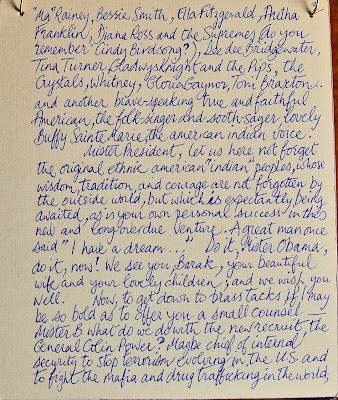 "Ma" Rainey, Bessie Smith, Ella Fitzgerald, Aretha
Franklin, Diana Ross and the Supremes (do you
remember "Cindy Birdsong?), Dee dee Bridgewater,
Tina Turner, Gladys Knight and the Pips, the
Crystals, Whitney, Gloria Gaynor, Toni Braxton...
and another brave-speaking true and faithful
American, the folk-singer and sooth-sayer lovely
Buffy Sainte Marie, the american indian voice.
Mister President, let us here not forget
the original ethnic american "indian" peoples, whose
wisdom, tradition, and courage are not forgotten by
the outside world, but which is expectantly being
awaited, as is your own personal success in this
new and long-overdue venture. A great man once
said "I have a dream..." Do it, Mister Obama,
do it, now! We see you, Barak, your beautiful
wife and your lovely children, and we wish you
well. Now, to get down to brass tacks if I may
be so bold as to offer you a small counsel —
Mister B what do we do with the new recruit, the
General Colin Power? Maybe chief of internal
security to stop terrorism evolving in the U.S. and
to fight the mafia and drug trafficking in the world,